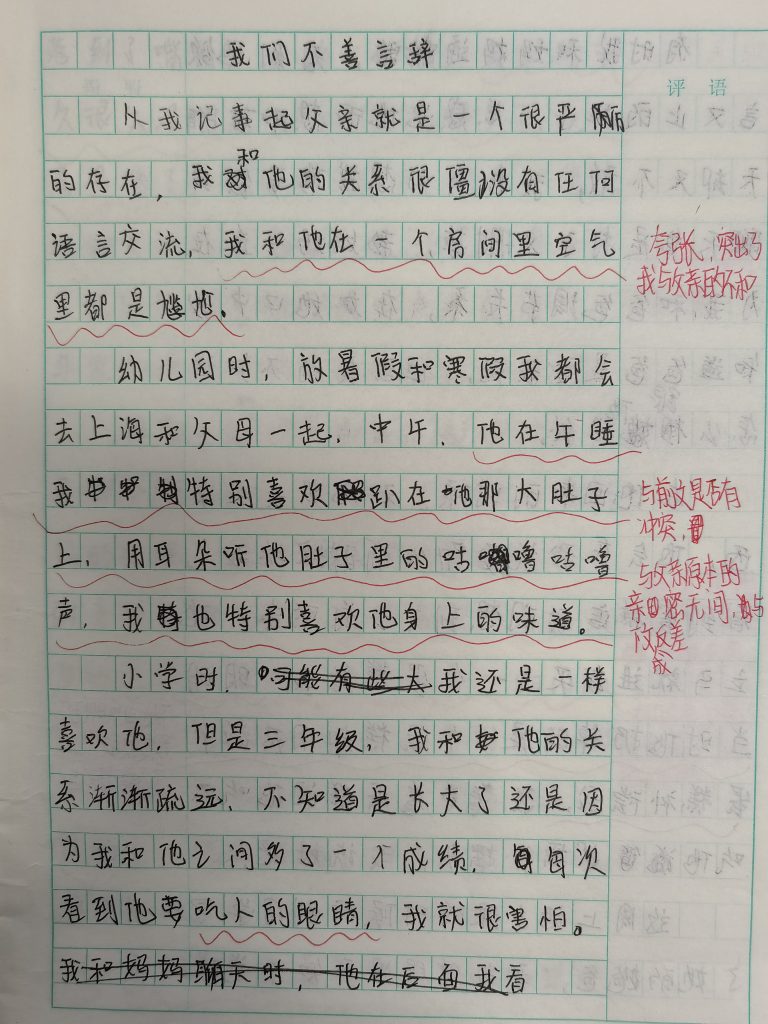 我们不善言辞
评语
从我记事起父亲就是一个很严丽
的存在，我和他的关系很僵没有任何
语言交流，我和他在一个房间里空气
里都是尴尬。
夸张，突出了
我与父亲的不和
幼儿园时，放暑假和寒假我都会
去上海和父母一起，中午，他在午睡
我特别喜欢趴在他那大肚子
上，用耳朵听他肚子里的咕噜咕噜
声，我也特别喜欢他身上的味道。
与前文是否有
冲突，
与父亲原本的
亲密无间，与
反差
小学时，可能有些大我还是一样
喜欢他，但是三年级，我和他的关
系渐渐疏远，不知道是长大了还是因
为我和他之间多了一个成绩，每次
看到他要吃人的眼睛，我就很害怕。
我和妈妈聊天时，他在后面我看